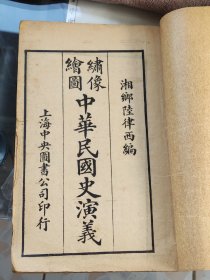 湘鄉陸律西編
繡像
繪圖
中華民國史演義
上海中央圖書公司印行